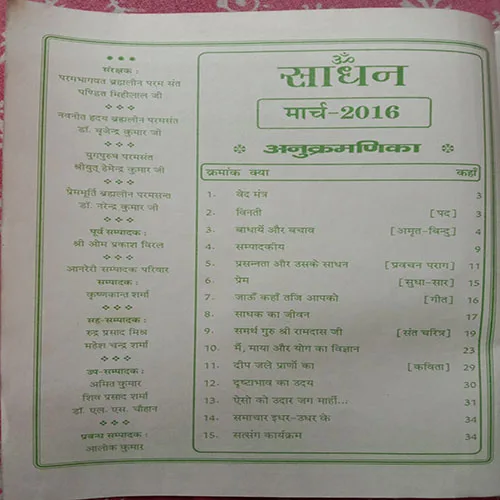 संरक्षक :
परमभागवत ब्रह्मलीन परम संत
पण्डित मिहीलाल जी
नवनीत हृदय ब्रह्मलीन परमसंत
डॉ. बृजेन्द्र कुमार जी
युगपुरुष परमसंत
श्रीयुत् हेमेन्द्र कुमार जी
प्रेममूर्ति ब्रह्मलीन परमसन्त
डॉ. नरेन्द्र कुमार जी
पूर्व सम्पादक :
श्री ओम प्रकाश विरल
आनरेरी सम्पादक परिवार
सम्पादक :
कृष्णकान्त शर्मा
सह-सम्पादक :
रुद्र प्रसाद मिश्र
महेश चन्द्र शर्मा
उप-सम्पादक :
अमित कुमार
शिव प्रसाद शर्मा
डॉ. एल. एस. चौहान
प्रबन्ध सम्पादक :
आलोक कुमार
ॐ
साधन
मार्च-2016
अनुक्रमणिका
क्रमांक क्या कहाँ
1. वेद मंत्र 3
2. विनती [ पद ] 3
3. बाधायें और बचाव [ अमृत-बिन्दु ] 4
4. सम्पादकीय 9
5. प्रसन्नता और उसके साधन [ प्रवचन पराग ] 11
6. प्रेम [ सुधा-सार ] 15
7. जाऊँ कहाँ तजि आपको [ गीत ] 16
8. साधक का जीवन 17
9. समर्थ गुरु श्री रामदास जी [ संत चरित्र ] 19
10. मैं, माया और योग का विज्ञान 23
11. दीप जले प्राणों का [ कविता ] 29
12. दृष्टाभाव का उदय 30
13. ऐसो को उदार जग माहीं... 31
14. समाचार इधर-उधर के 34
15. सत्संग कार्यक्रम 34